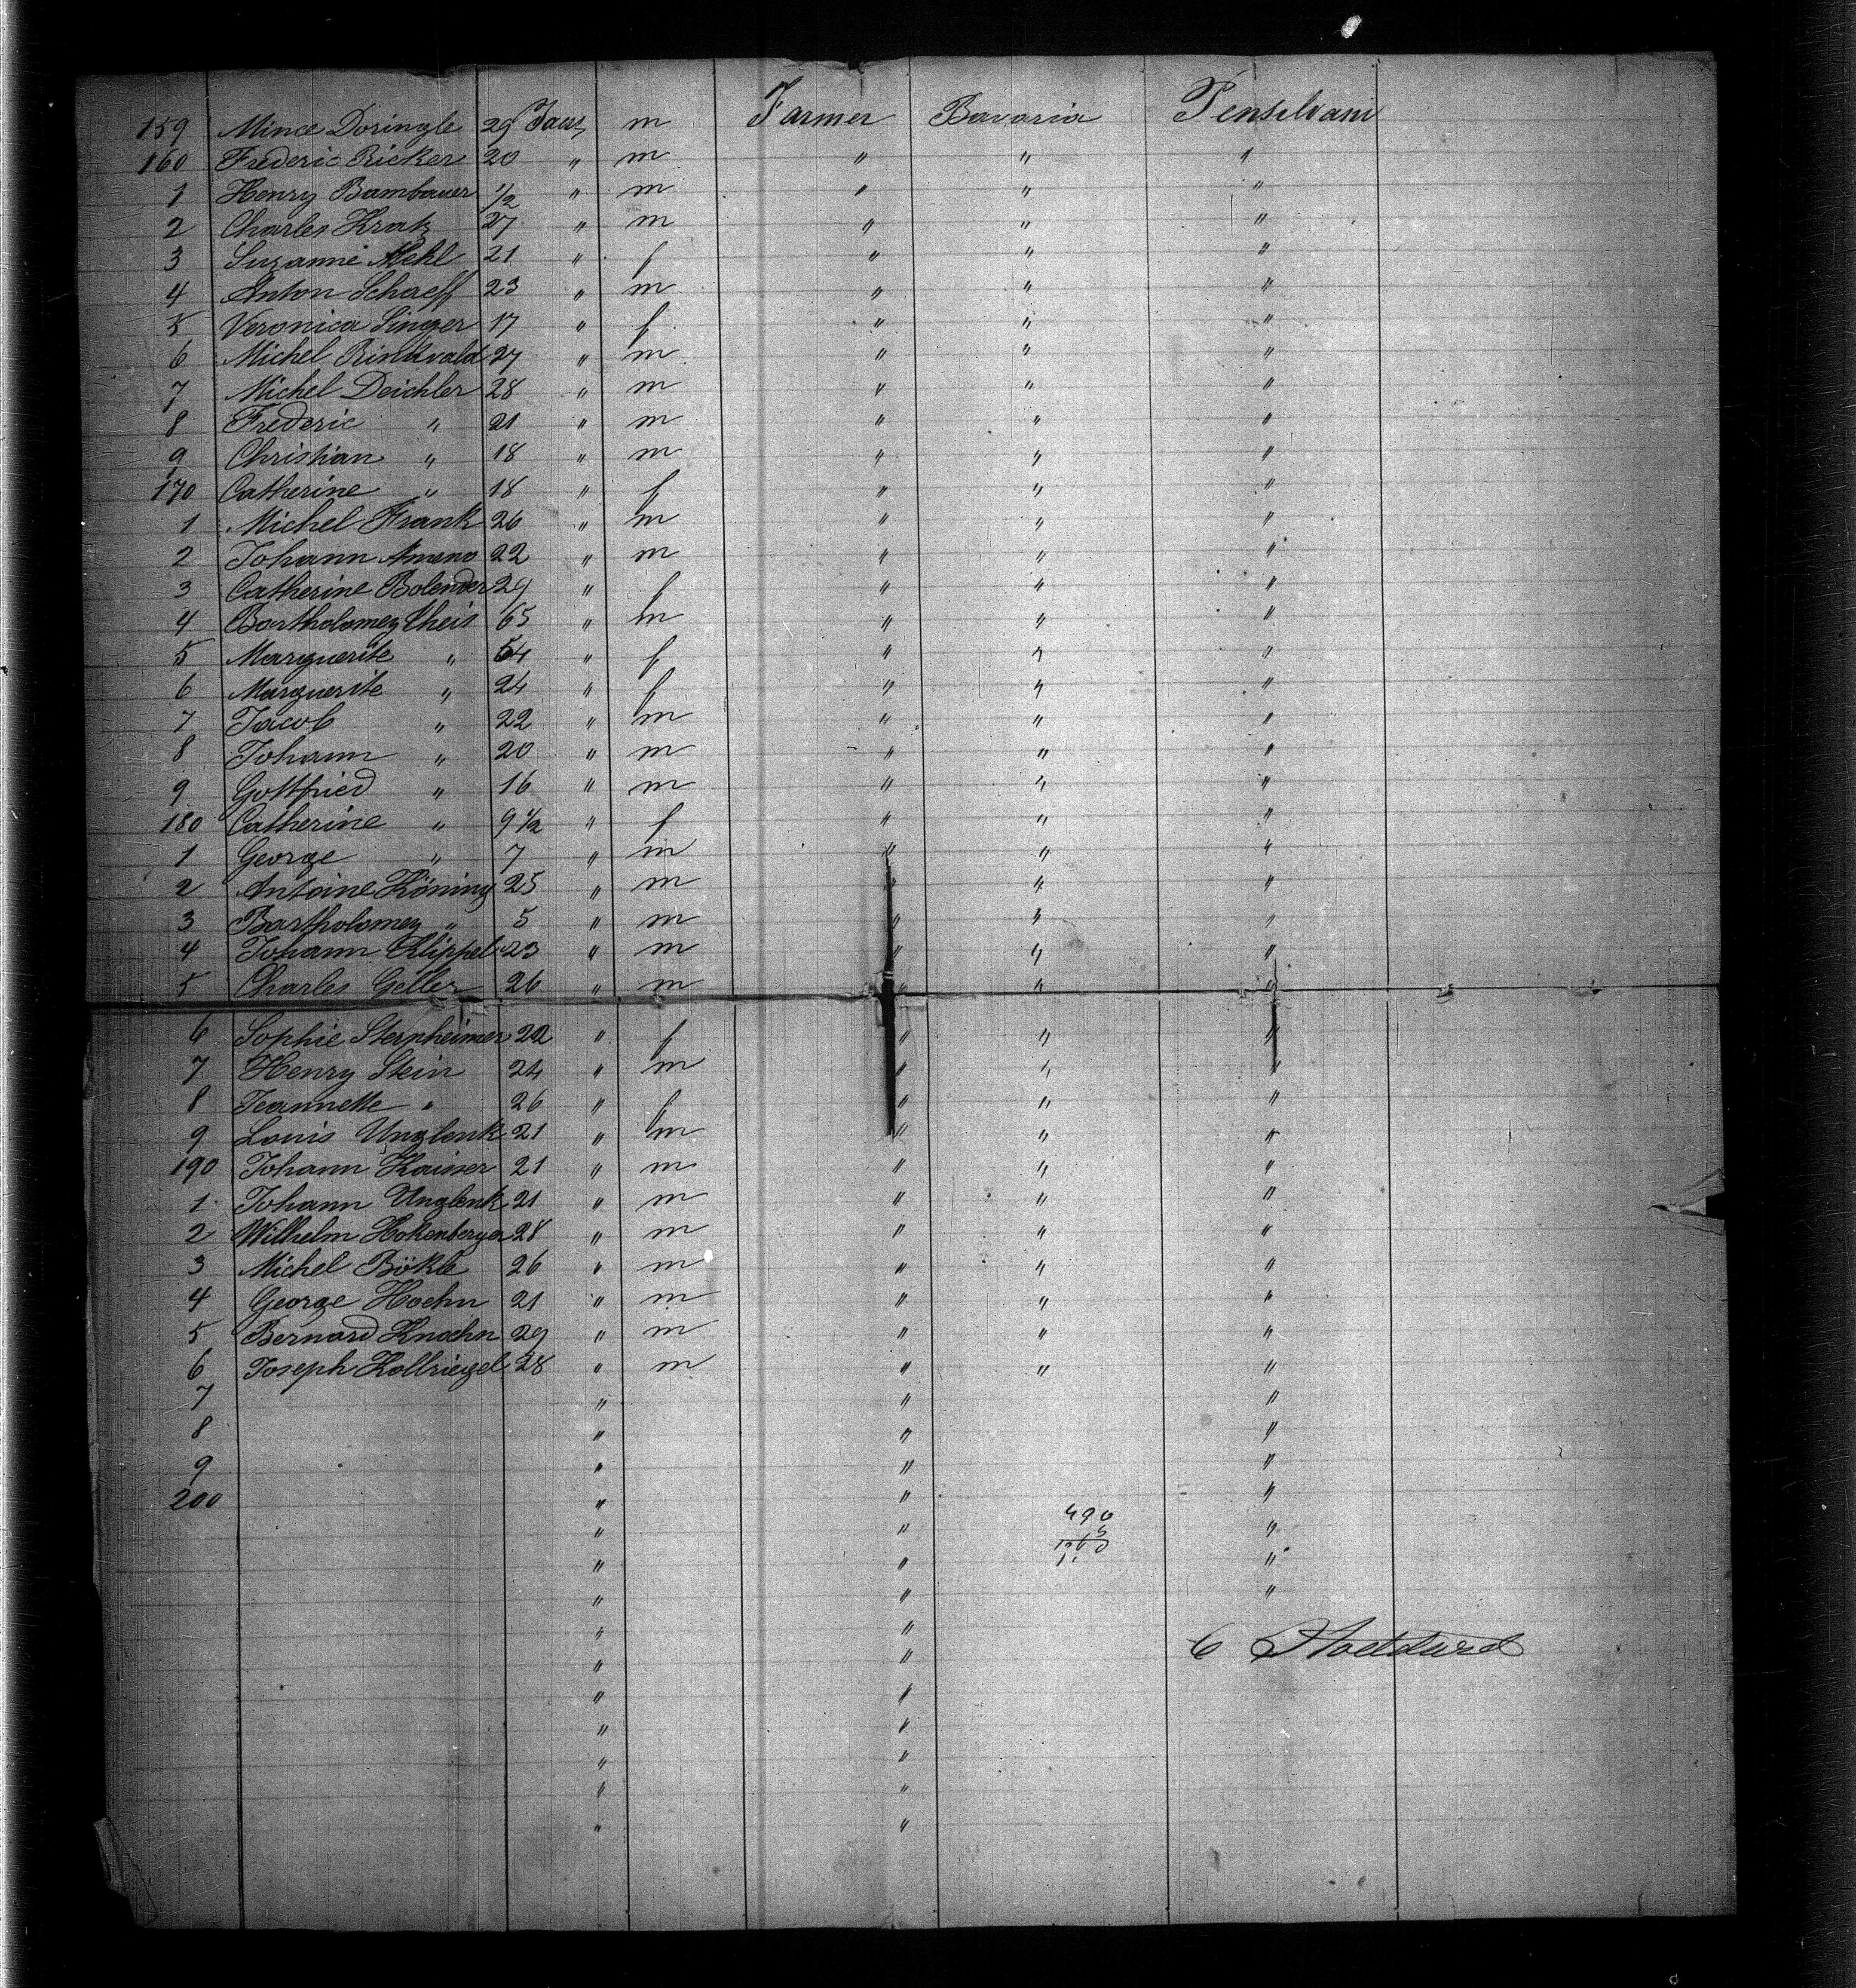 159 Mince Doringle 29 Jaers m Farmer Bavaria Pensilvani
160 Frederic Ricker 20 " m " " "
1 Henry Bambauer 1/2 " m " " "
2 Charles Kratz 27 " m " " "
3 Suzanne Mehl 21 " f " " "
4 Anton Schaeff 23 " m " " "
5 Veronica Singer 17 " f " " "
6 Michel Rinkvald 27 " m " " "
7 Michel Deichler 28 " m " " "
8 Frederic " 21 " m " " "
9 Christian " 18 " m " " "
170 Catherine " 18 " f " " "
1 Michel Frank 26 " m " " "
2 Johann 22 " m " " "
3 Catherine Bolender 29 " f " " "
4 Bartholomey Theis 65 " m " " "
5 Marguerite " 54 " f " " "
6 Marguerite " 24 " f " " "
7 Jacob " 22 " m " " "
8 Johann " 20 " m " " "
9 Gottfried " 16 " m " " "
180 Catherine " 9 1/2 " f " " "
1 George " 7 " m " " "
2 Antoine Höning 25 " m " " "
3 Bartholomey " 5 " m " " "
4 Johann Klippel 23 " m " " "
5 Charles Geller 26 " m " " "
6 Sophie Sternheimer 22 " f " " "
7 Henry Stein 24 " m " " "
8 Jeannette " 26 " f " " "
9 Louis Unglenk 21 " m " " "
190 Johann Kaisser 21 " m " " "
1 Johann Unglenk 21 " m " " "
2 Wilhelm Hokenberger 28 " m " " "
3 Michel Bökle 26 " m " " "
4 George Hoehn 21 " m " " "
5 Bernard Knoehn 29 " m " " "
6 Joseph Kollriegel 28 " m " " "
7 " " "
8 " " "
9 " " "
200 " " "
490
" " "
" " "
" " "
" "
" "
" "
" "
" "
" "
" "